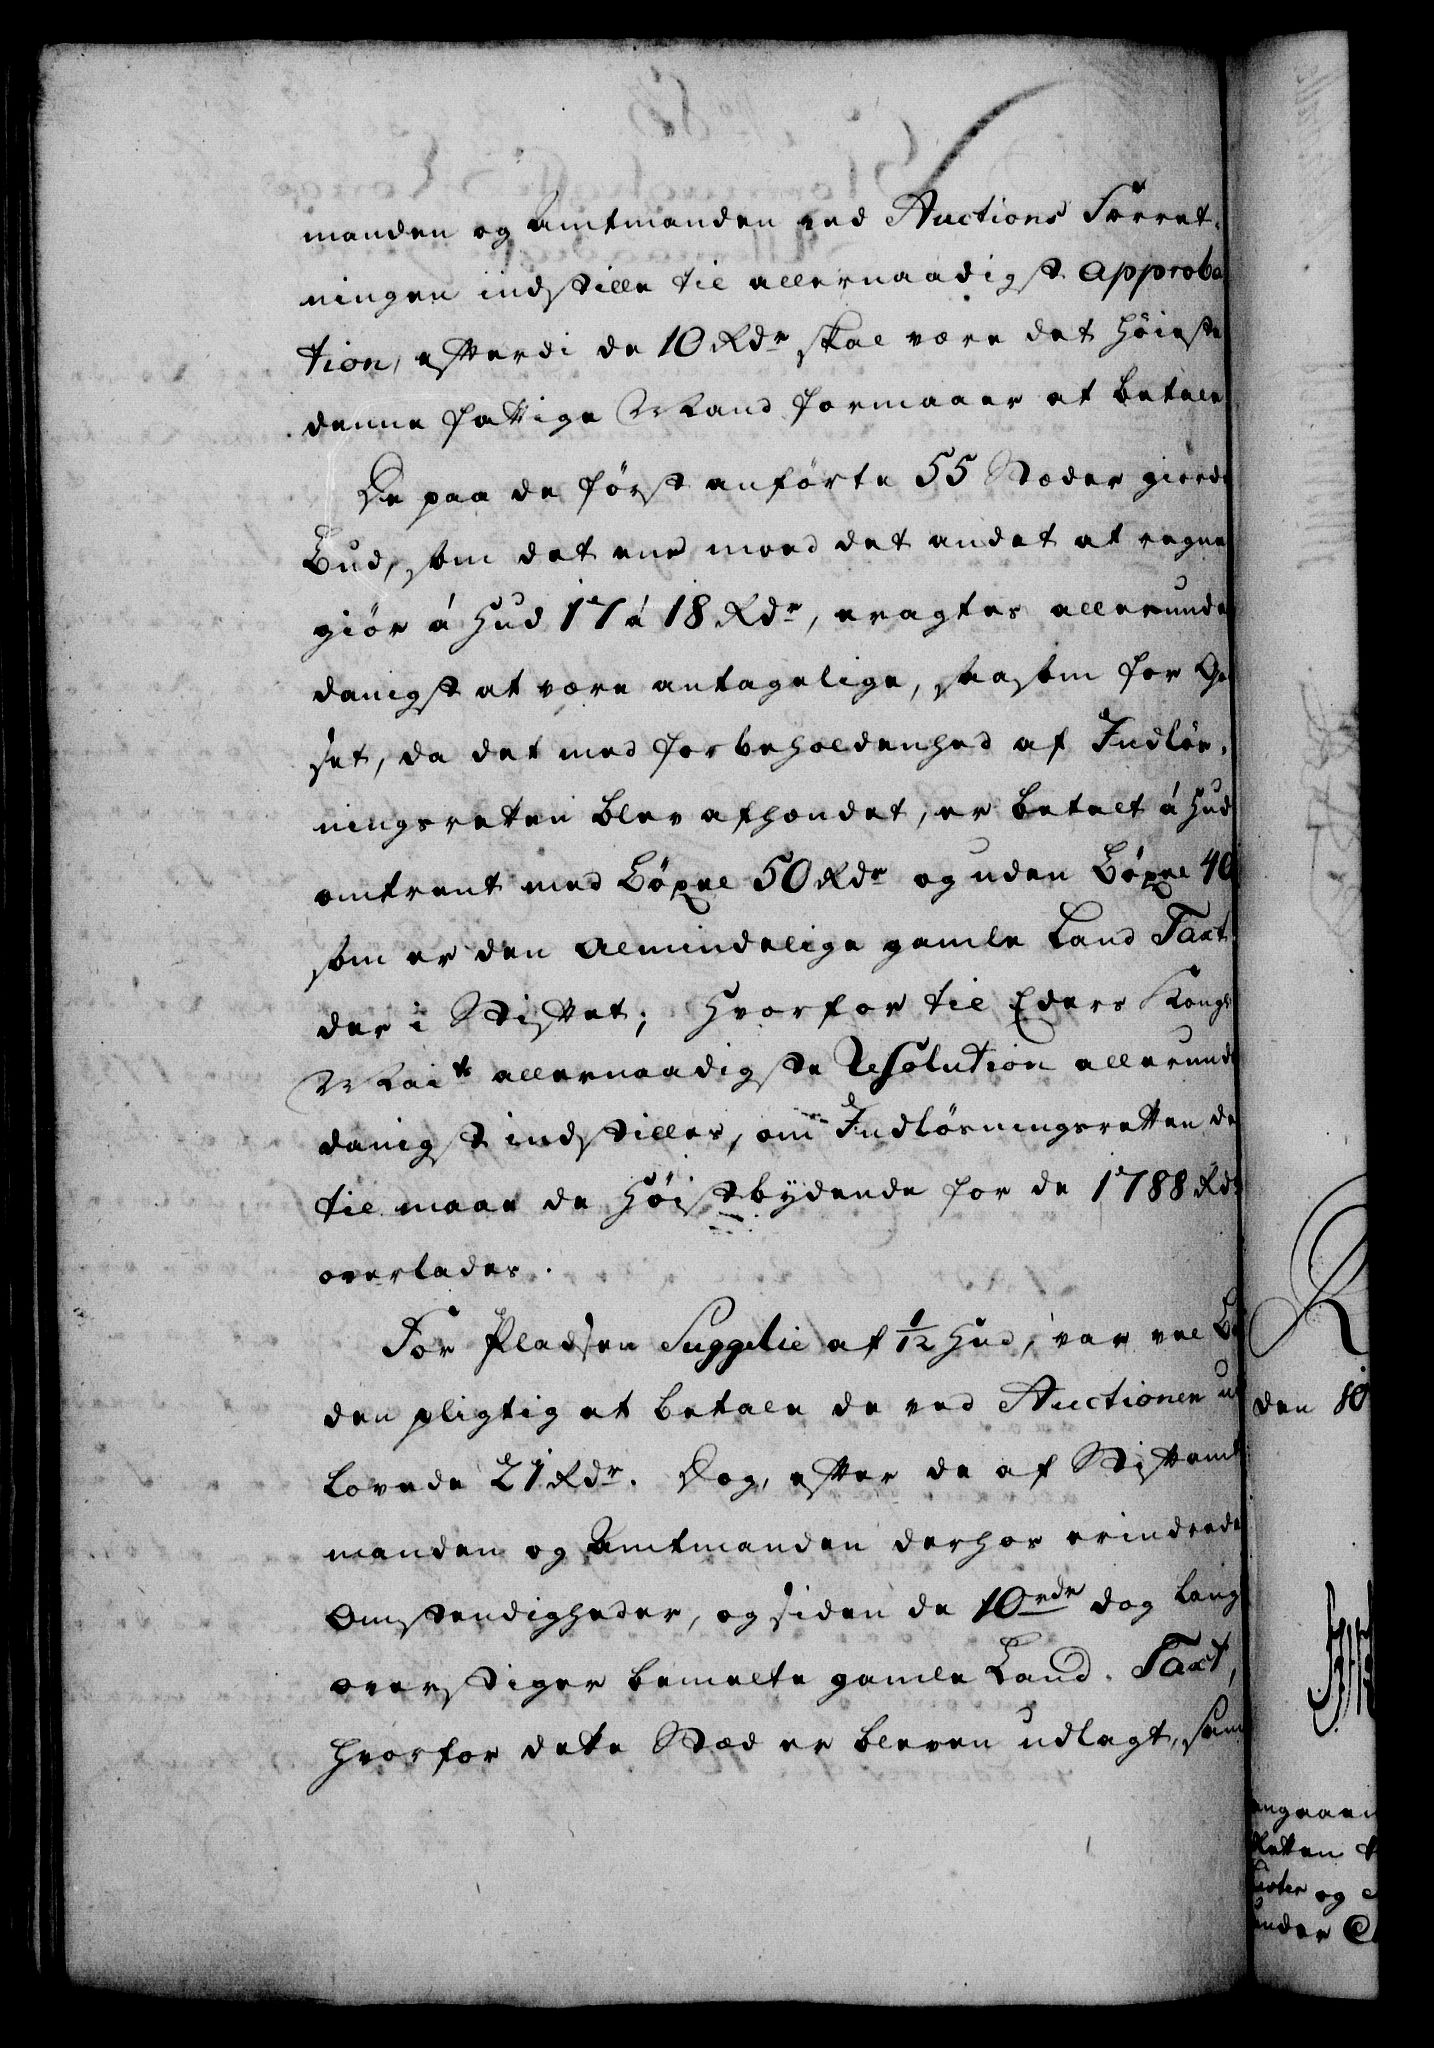 manden og Amtmanden ved Auctions Forret-
ningen indstille til allernaadigst approba
tion, efterdi de 10 Rdr skal være det høieste
denne fattige Mand formaaer at betale
De paa de først anførte 55 Stæder giorde
Bud, som det ene med det andet at regne
giør á Hud 17 á 18 Rdr, eragtes allerunder
danigst at være antagelige, saasom for Go
set, da det med forbeholdenhed af Indløs-
ningsretten blev afhændet, er betalt á Hud
omtrent med Bøxel 50 Rdr og uden Bøxel 40
som er den almindelige gamle Land Taxt
der i Stiftet; Hvorfor til Eders Kongl
Maits allernaadigste Resolution allerund
danigst indstilles, om Indløsningsretten der
til maae de Høistbydende for de 1788 Rdr
overlades.
For Pladsen Suggelie af 1/12 Hud, var vel Bo
den pligtig at betale de ved Auctionen ud
lovede 21 Rdr. Dog, efter de af Stiftamt
manden og Amtmanden derhos erindrede
Omstendigheder, og siden de 10 rdr dog langt
overstiger bemelte gamle Land-Taxt,
hvorfor dette Stæd er bleven udlagt, sam
den 10
angaaen
Retten
og
under